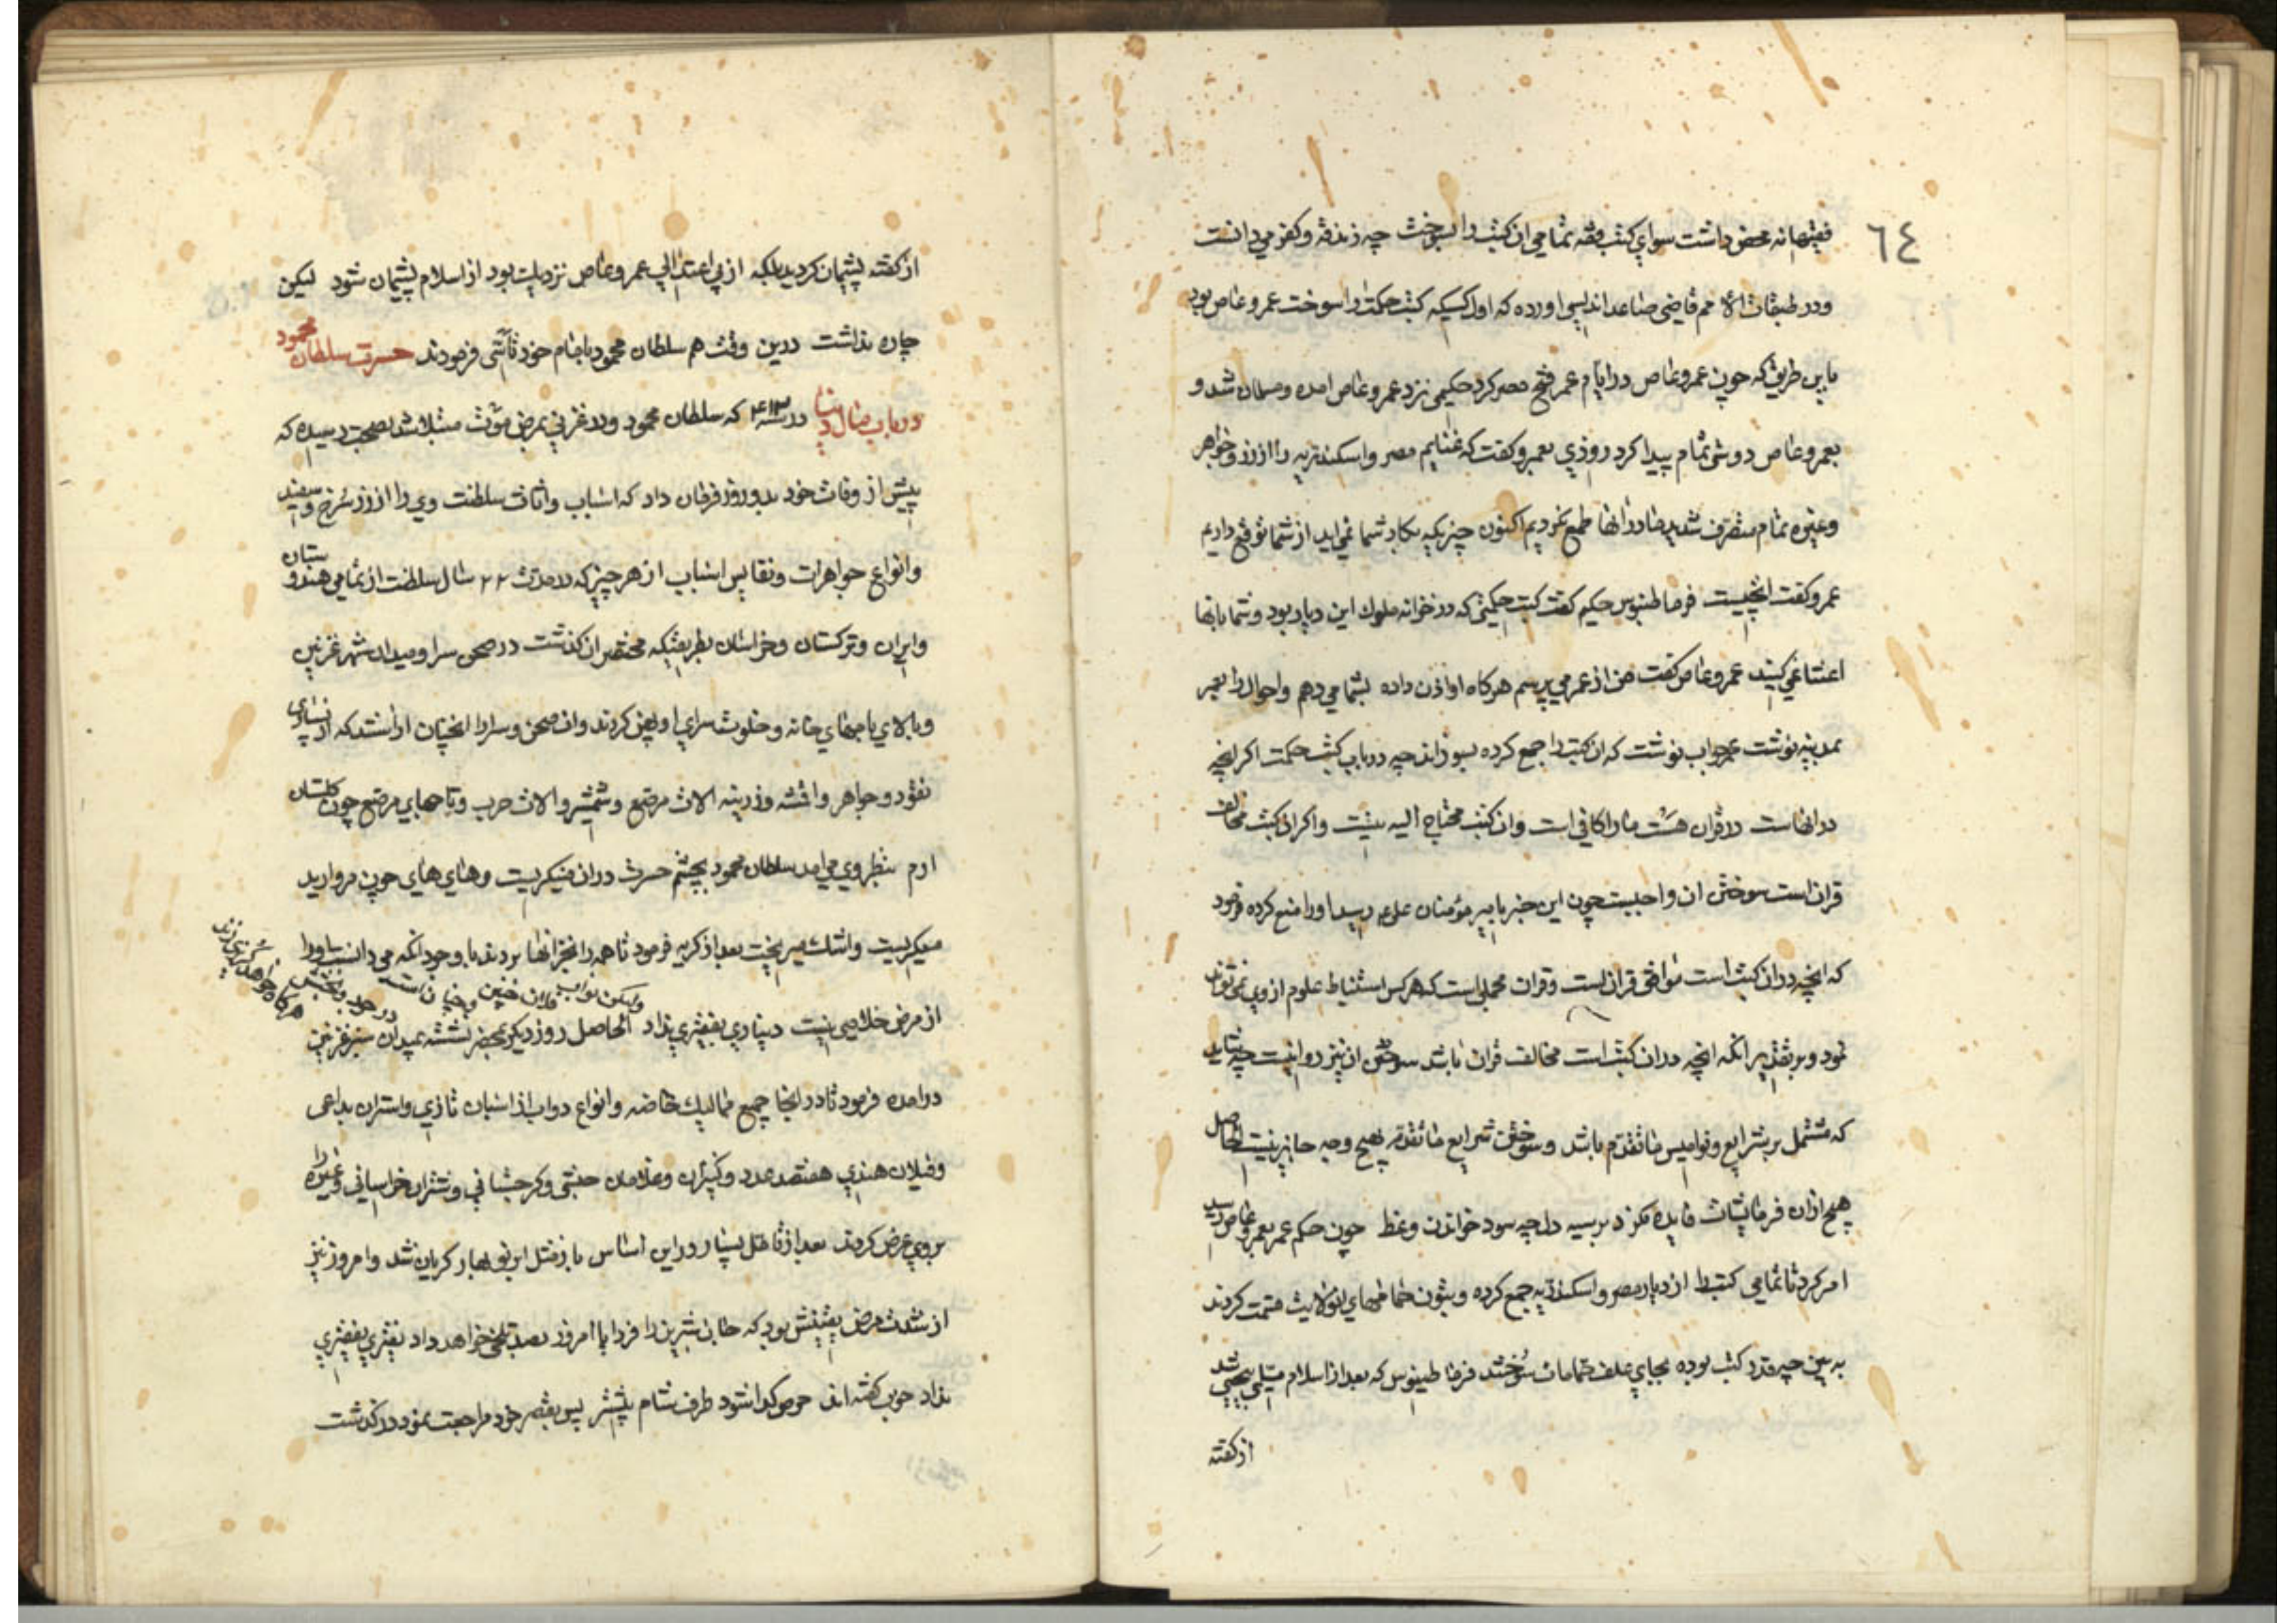 ٦٤
فقیهانه محض داشت سوای کتب فقه تمامی ان کتب را بسوخت چه زندقه و کفر میدانست
ودر طبقات الامم قاضی صاعد اندلسی اورده که اول کسیکه کتب حکمت را سوخت عمرو عاص بود
باین طریق که چون عمرو عاص در ایام عمر فتح مصر کرد حکیمی نزد عمرو عاص امده ومسلمان شد و
بعمرو عاص دوشی تمام پیدا کرد روزی بعمرو کفت که غنایم مصر واسکندریه را از زر وجواهر
وغیره تمام متصرف شدید ما در انها طمع نکردیم اکنون چیزیکه بکار شما نمی اید از شما توقع داریم
عمرو کفت انچیست فرماطینوس حکیم کفت کتب حکمتی که در خزانه ملوک این دیار بود وشما بانها
اعتنا نمی کنید عمرو عاص کفت من از عمر می پرسم هرکاه او اذن داده بشما می دهم واحوال را بعمر
بمدینه نوشت عمر جواب نوشت که ان کتب را جمع کرده بسوزاند چه در باب کتب حکمت اکر انچه
در انهاست در قران هست ما را کافی است وان کتب محتاج الیه نیست واکر ان کتب مخالف
قران است سوختن ان واجبست چون این خبر بامیر مؤمنان علی رسید او را منع کرده فرمود
که انچه در ان کتب است موافق قران است وقران مجملی است که هر کس استنباط علوم از وی نمی تواند
نمود وبر تقدیر انکه انچه در ان کتب است مخالف قران باشد سوختن ان نیز روا نیست چه شاید
که مشتمل بر شرایع ونوامیس ما تقدم باشد وسوختن شرایع ما تقدم بهیچ وجه جایز نیست الحاصل
هیچ ازان فرمایشات فایده نکرد بر سیه دل چه سود خواندن وعظ چون حکم عمر بعمرو عاص رسید
امر کرد تا تمامی کتب را از دیار مصر واسکندریه جمع کرده وبتون حمامهای انولایت قسمت کردند
به بین چه قدر کتب بوده بجای علف حمامات سوختند فرماطینوس که بعد از اسلام مسمی بیحیی شد
از کفته
از کفته پشیمان کردید بلکه از بی اعتدالی عمرو عاص نزدیک بود از اسلام پشیمان شود لیکن
چاره نداشت درین وقت هم سلطان محمود باتمام خود تأسی فرمودند حسرت سلطان محمود
در باب مال دنیا در سنه ۴۱۳ که سلطان محمود در غزنی بمرض موت مبتلا شد بصحت رسیده که
پیش از وفات خود بدو روز فرمان داد که اسباب واثاث سلطنت وی را از زر سرخ و سفید
وانواع جواهرات ونفایس اسباب از هر چیز که در مدت ۲۲ سال سلطنت از تمامی هندوستان
وایران وترکستان وخراسان بطریقیکه مختصر ان کذشت در صحن سرا ومیدان شهر غزنین
وبالای بامهای خانه وخلوت سرای او پهن کردند وان صحن وسرا را انچنان اراستند که از بسیاری
نقود وجواهر واقمشه وزرینه الات مرصع وشمشیر والات حرب وتاجهای مرصع چون کلستان
ارم بنظر وی می امد سلطان محمود بچشم حسرت دران مینکریست وهای های چون مروارید
میکریست واشک میریخت بعد از کریه فرمود تا همه را بخزانها بردند با وجود انکه می دانست او را
از مرض خلاصی نیست دیناری بفقیری نداد الحاصل روز دیکر بمحفه نشسته بمیدان سبز غزنین
درامده فرمود تا در انجا جمیع ممالیک خاصه وانواع دواب از اسبان تازی واستران بداعی
وفیلان هندی هفتصد عدد وکنیزان وغلامان حبشی وکرجستانی وشتران خراسانی وغیره را
بروی عرض کردند بعد از تامل بسیار ور این اساس باز مثل ابر نو بهار کریان شد وامروز نیز
از شدت مرض یقینش بود که جان شیرین را فردا یا امروز بصد تلخی خواهد داد نقیری بفقیری
نداد خوب کفته اند حرص کدا شود طرف شام بیشتر پس بقصر خود مراجعت نمود درکذشت